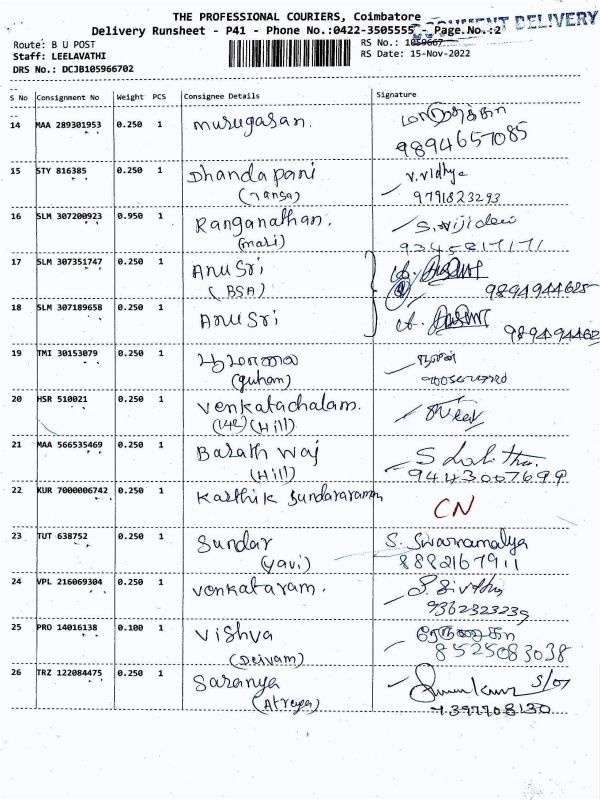 THE PROFESSIONAL COURIERS, Coimbatore
DOCUMENT DELIVERY
Delivery Runsheet - P41 - Phone No.:0422-3505555 - Page.No.:2
Route: B U POST
RS No.: 1059667
Staff: LEELAVATHI
RS Date: 15-Nov-2022
DRS No.: DCJB105966702
S No Consignment No Weight PCS Consignee Details Signature
14 MAA 289301953 0.250 1 murugasan.
9894657085
15 STY 816385 0.250 1 Dhandapani V.Vidhya
(ransa) 9791823293
16 SLM 307200923 0.950 1 Ranganathan. S.Vijidevi
(mali)
17 SLM 307351747 0.250 1 Anu Sri
(BSA) 9894944625
18 SLM 307189658 0.250 1 Anu Sri
989494462
19 TMI 30153079 0.250 1
(guham)
20 HSR 510021 0.250 1 Venkatachalam.
(Hill)
21 MAA 566535469 0.250 1 Barath waj S Lalitha.
(Hill) 9443007699
22 KUR 7000006742 0.250 1 Karthik Sundararaman CN
23 TUT 638752 0.250 1 Sundar S. Swarnamalya
(yavi) 8882167911
24 VPL 216069304 0.250 1 Venkataram.
9362323239
25 PRO 14016138 0.100 1 Vishva
(Deivam) 8525083038
26 TRZ 122084475 0.250 1 Saranya S/O
(Atreya)